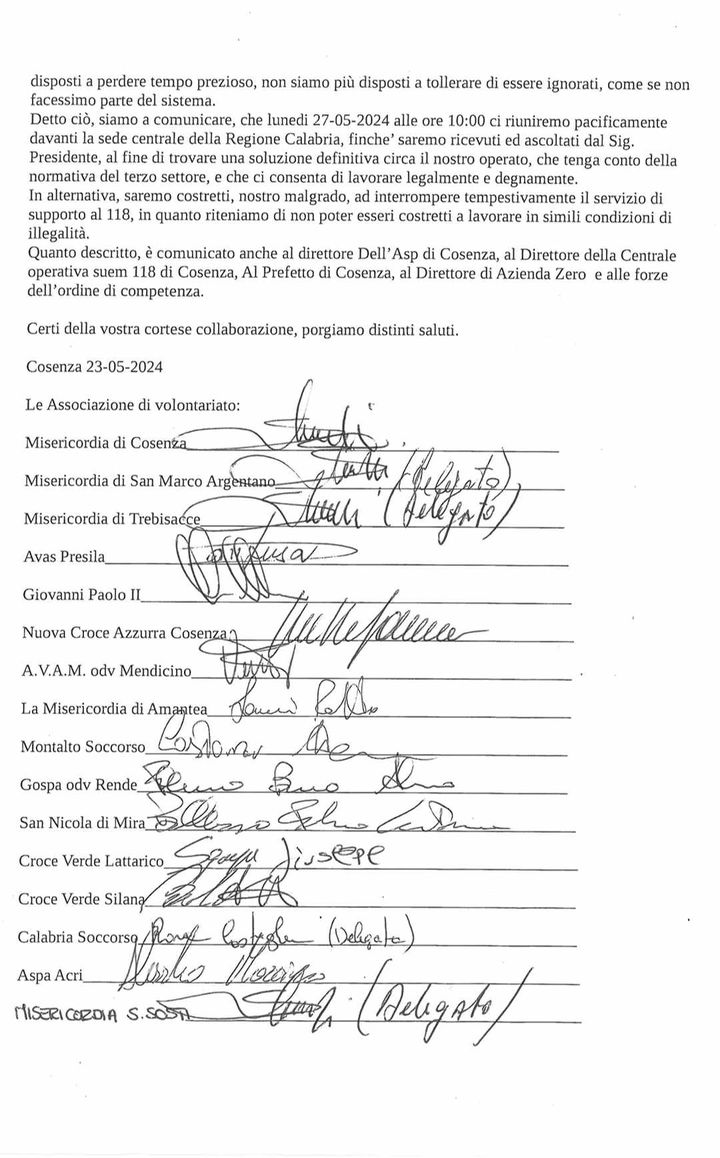 disposti a perdere tempo prezioso, non siamo più disposti a tollerare di essere ignorati, come se non
facessimo parte del sistema.
Detto ciò, siamo a comunicare, che lunedi 27-05-2024 alle ore 10:00 ci riuniremo pacificamente
davanti la sede centrale della Regione Calabria, finche’ saremo ricevuti ed ascoltati dal Sig.
Presidente, al fine di trovare una soluzione definitiva circa il nostro operato, che tenga conto della
normativa del terzo settore, e che ci consenta di lavorare legalmente e degnamente.
In alternativa, saremo costretti, nostro malgrado, ad interrompere tempestivamente il servizio di
supporto al 118, in quanto riteniamo di non poter esseri costretti a lavorare in simili condizioni di
illegalità.
Quanto descritto, è comunicato anche al direttore Dell’Asp di Cosenza, al Direttore della Centrale
operativa suem 118 di Cosenza, Al Prefetto di Cosenza, al Direttore di Azienda Zero e alle forze
dell’ordine di competenza.
Certi della vostra cortese collaborazione, porgiamo distinti saluti.
Cosenza 23-05-2024
Le Associazione di volontariato:
Misericordia di Cosenza
Misericordia di San Marco Argentano (Delegato)
Misericordia di Trebisacce (Delegato)
Avas Presila
Giovanni Paolo II
Nuova Croce Azzurra Cosenza
A.V.A.M. odv Mendicino
La Misericordia di Amantea
Montalto Soccorso
Gospa odv Rende
San Nicola di Mira
Croce Verde Lattarico
Croce Verde Silana
Calabria Soccorso (Delegata)
Aspa Acri
MISERICORDIA S.SOSTI (Delegato)